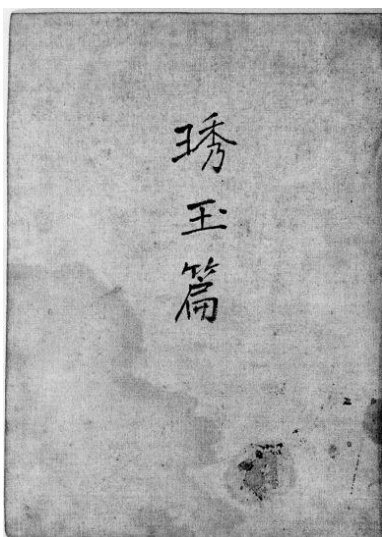 琇玉篇